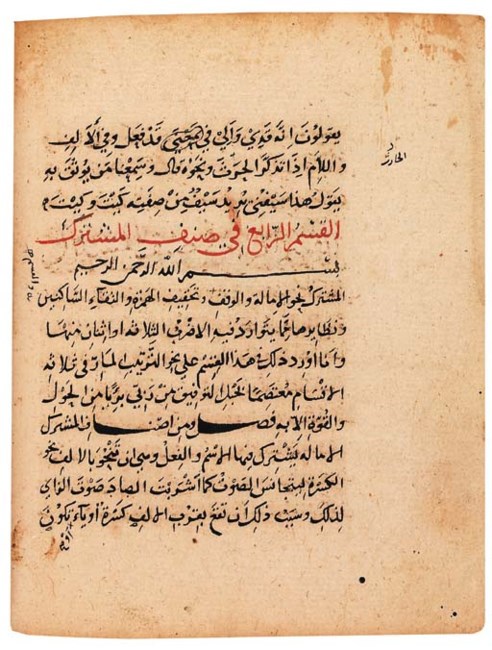 يقولون انه قدي وألي في المجيئ قد فعل وفي الالف
واللام اذا تذكر الحرث ونحوه قال وسمعنا من يوثق به
يقول هذا سيفني يريد سيف من صفته كيت وكيت
القسم الرابع في صنف المشترك
بسم الله الرحمن الرحيم
المشترك نحو الامالة والوقف وتخفيف الهمزة والتقاء الساكنين
ونظايرها مما يتوارد فيه الاضرب الثلاثة او اثنان منها
وانا اورد ذلك في هذا القسم على نحو الترتيب المار في ثلاثة
الاقسام معتصما بحبل التوفيق من ربي بريا من الحول
والقوة الا به فصل ومن اصناف المشترك
الامالة يشترك فيها الاسم والفعل وهي ان تنحو بالالف نحو
الكسرة ليتجانس الصوت كما اشربت الصاد صوت الزاي
لذلك وسبب ذلك ان تقع بقرب الالف كسرة او ياء او تكون